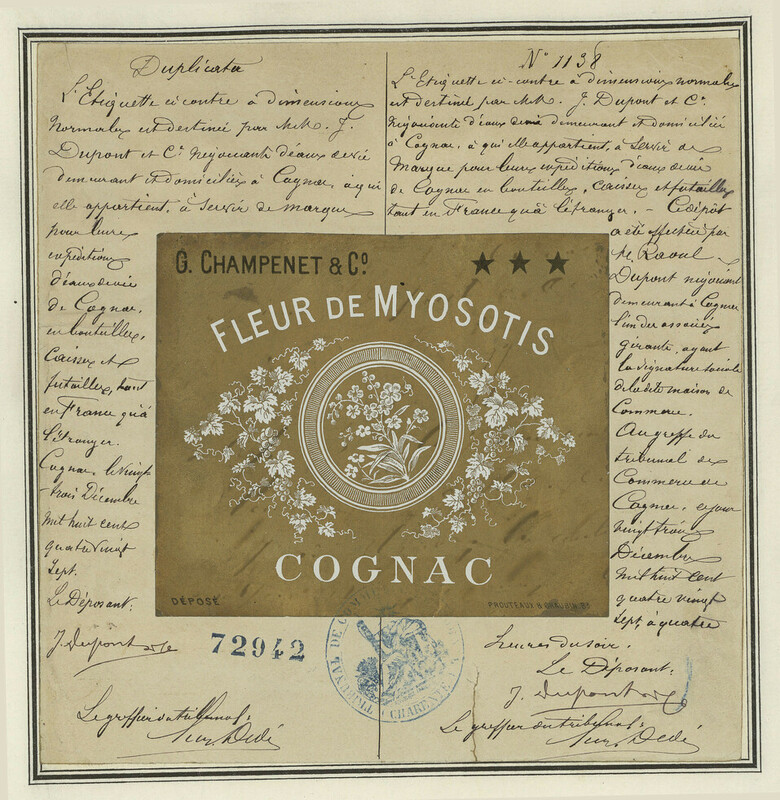 Duplicata
L'Etiquette ci-contre à dimensions
normales est destinée par MM. J.
Dupont et Cie négociants d'eaux de vie
demeurant et domiciliés à Cognac, à qui
elle appartient, à servir de marque
pour leurs
expéditions
d'eaux de vie
de Cognac,
en bouteilles,
Caisses et
futailles, tant
en France qu'à
l'étranger.
Cognac, le vingt
trois Décembre
mil huit cent
quatre vingt
sept.
Le Déposant:
J. Dupont et Cie
Le greffier du tribunal:
N° 1138
L'Etiquette ci-contre à dimensions normales
est destinée par MM. J. Dupont et Cie
négociants d'eaux de vie demeurant et domiciliés
à Cognac, à qui elle appartient, à servir de
Marque pour leurs expéditions d'eaux de vie
de Cognac en bouteilles, caisses et futailles
tant en France qu'à l'étranger. - Ce dépôt
a été effectué par
M. Raoul
Dupont négociant
demeurant à Cognac
l'un des associés
gérants, ayant
la signature sociale
de la dite maison de
Commerce.
Au greffe du
tribunal de
Commerce de
Cognac, ce jour
vingt trois
Décembre
mil huit cent
quatre vingt
sept, à quatre
heures du soir.
Le Déposant:
J. Dupont et Cie
Le greffier du tribunal:
G. CHAMPENET & Co
★★★
FLEUR DE MYOSOTIS
COGNAC
DÉPOSÉ
PROUTEAUX
72942
TRIBUNAL DE COMMERCE
CHARENTE